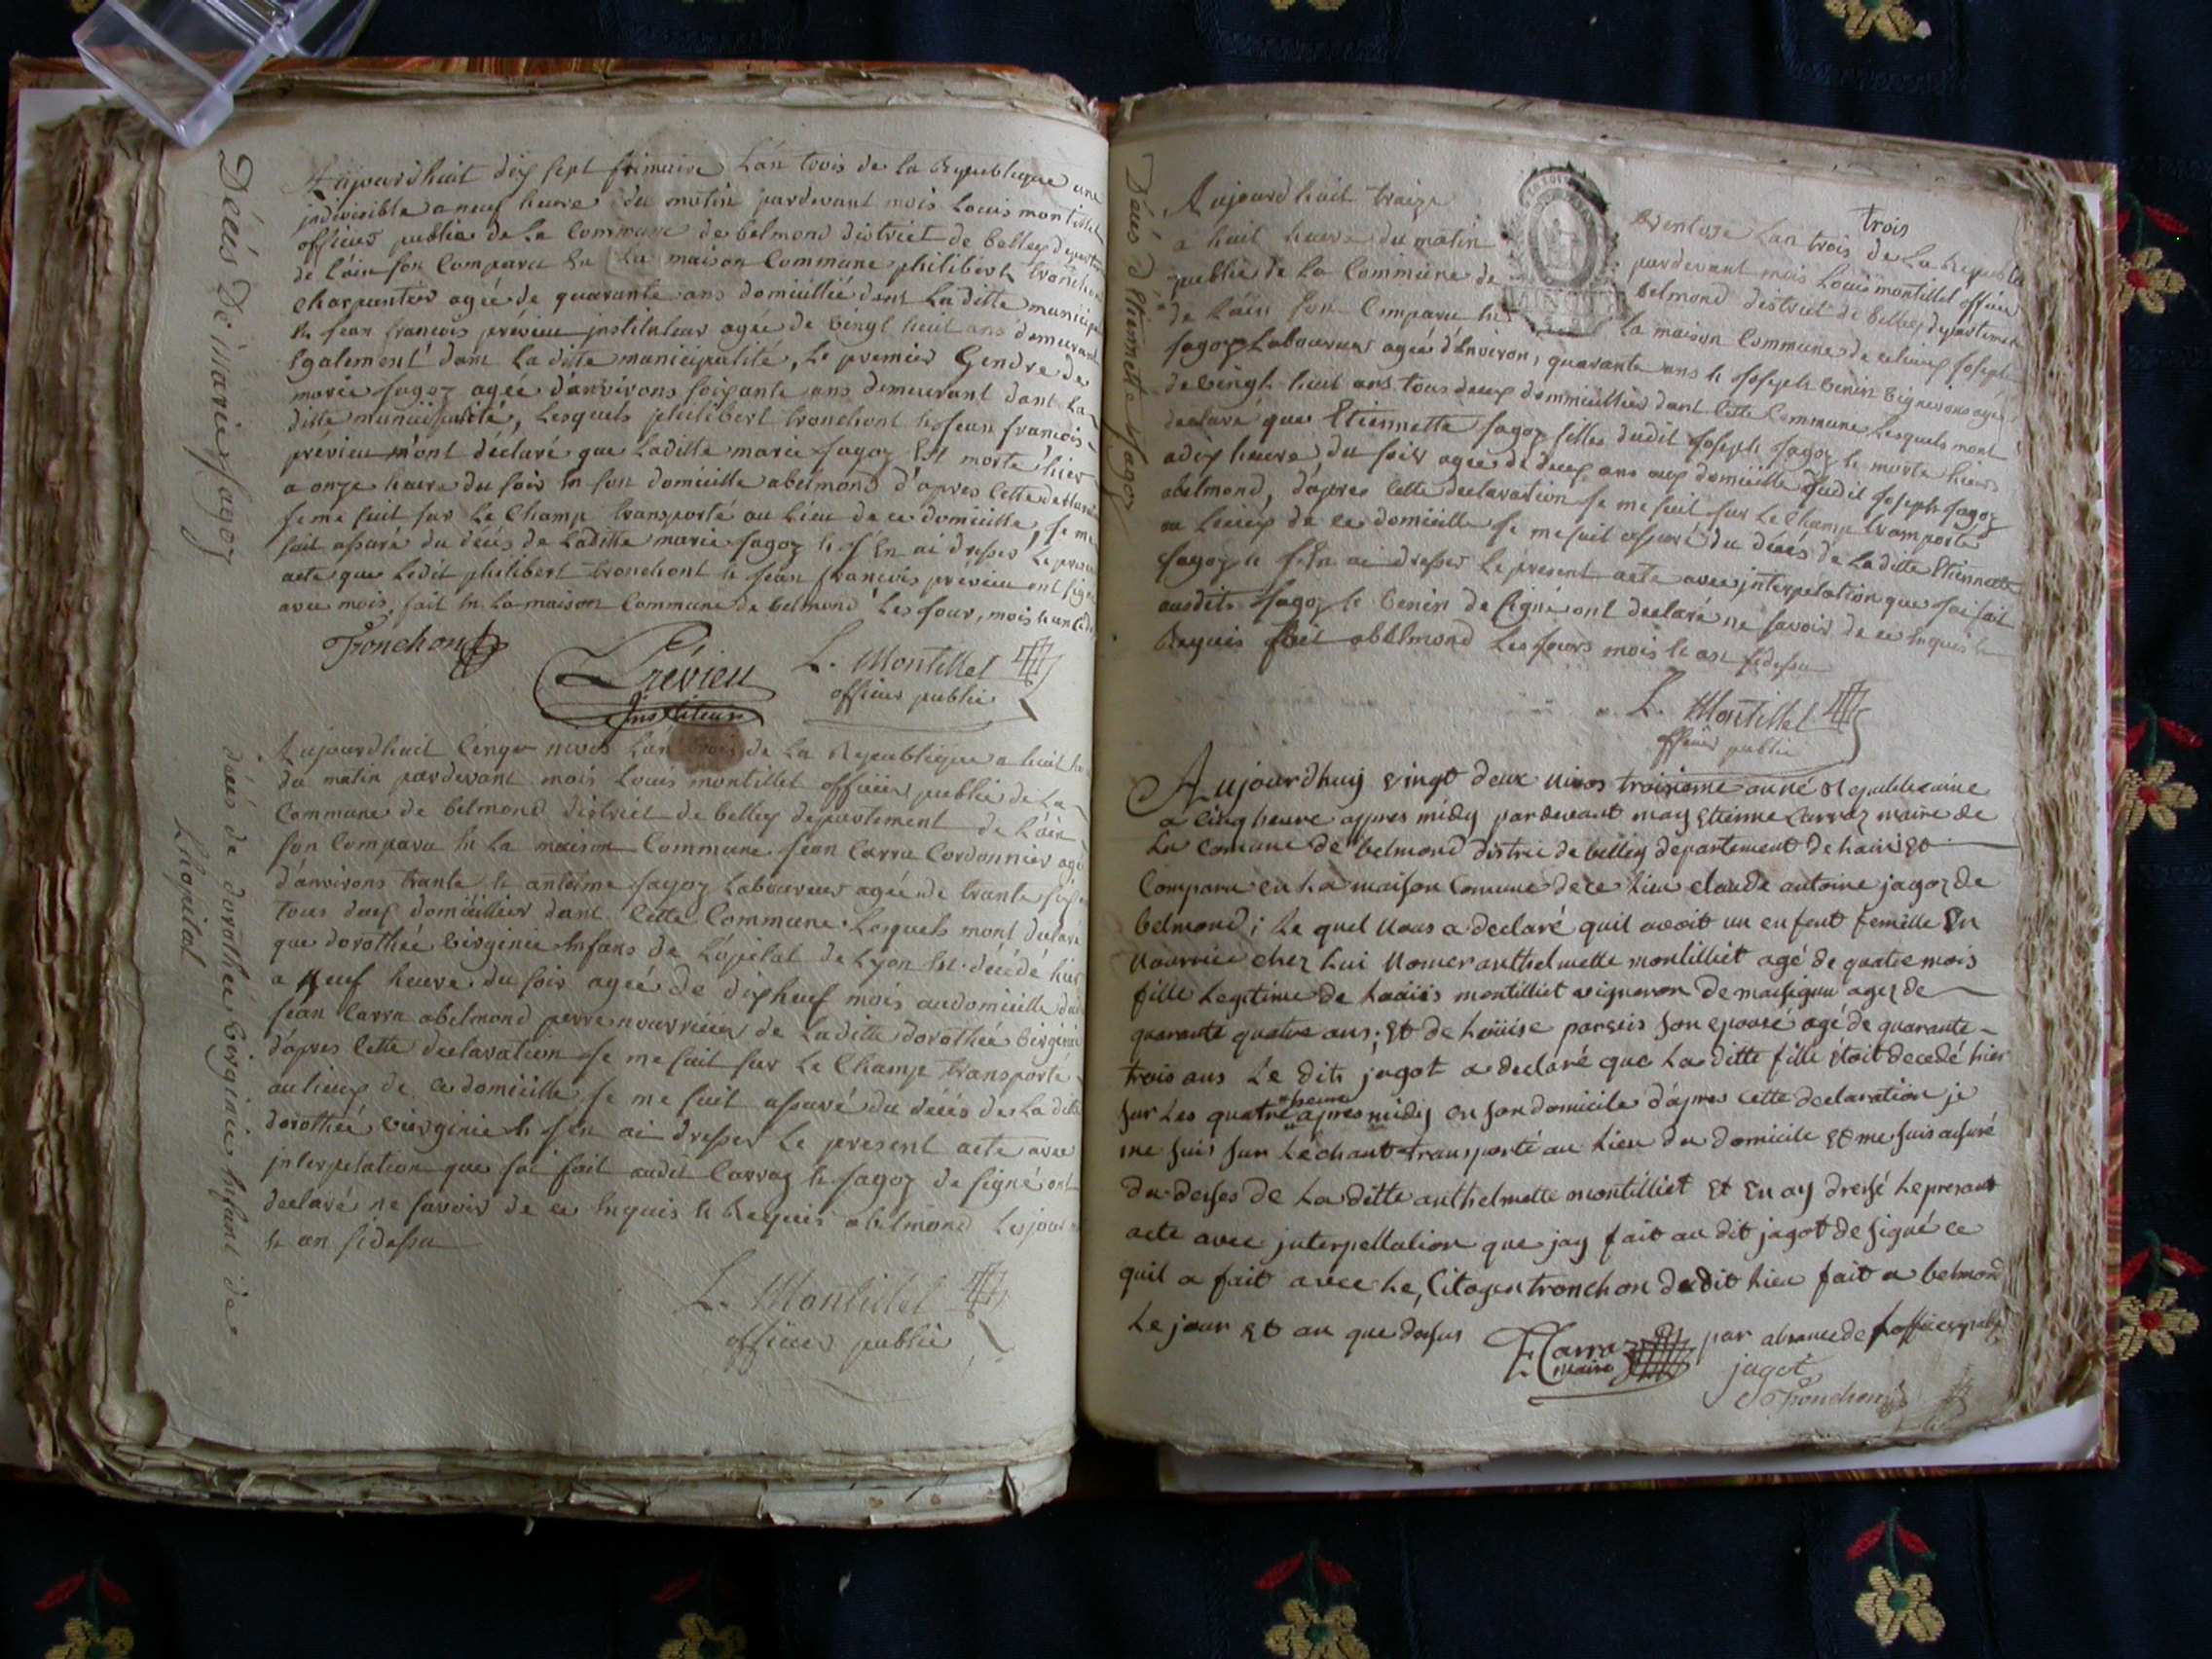 Décès De Marie Jagoz
Aujourdhuit dix sept frimaire L'an trois de la Republique une
jndivisible a neuf heure du matin pardevant mois Louis montillet
officier public de La Commune de belmond district de belley departem
de L'ain son Comparu En La maison Commune philibert tronchon
Charpantier agée de quarante ans domicillié dant La ditte municip
le jean francois prévieu jnstituteur agée de vingt huit ans demeurant
Egalement dant La ditte municipalité, Le premier Gendre de
marie jagoz agée d'anvirons soixante ans demeurant dant La
ditte municipalité, Lesquels philibert tronchont le jean francois
prévieu m'ont déclaré que Laditte marie jagoz Est morte hier
a onze heure du soir En son domicille abelmond d'apres Cette declara
je me suit sur Le Champ transporté au Lieu de ce domicille, je me
suit assuré du décés de Laditte marie jagoz le j'En ai dresser Le prese
acte que Ledit philibert tronchont le jean francois prévieu ont signé
avec mois, fait En La maison Commune de belmond Les jour, mois le an
Tronchont
Prévieu L. Montillet
jnstituteur officier public
décés de dorothée virginie Enfant de
L'hopital
Aujourdhuit nivos Lan trois de La Republique a huit h
du matin pardevant mois Louis montillet officier public de La
Commune de belmond district de belley departement de L'ain
son Comparu En La maison Commune jean Carra Cordonnier agé
d'anvirons trante le antoime jagoz Laboureur agée de trante
tous deux domicillier dant Cette Commune Lesquels mont declaré
que dorothée virginie Enfans de L'opital de Lyon Est décédé hier
a Neuf heure du soir agée de dix huit mois audomicille dud
jean Carra abelmond perre nourricier de Laditte dorothée virginie
d'apres Cette declaration je me suit sur Le Champ transporté
au lieux de ce domicille je me suit assuré du décés de La ditte
dorothée virginie le j'en ai dresser Le present acte avec
jnterpelation que jai fait audit Carraz le jagoz de signé ont
declaré ne savoir de ce Enquis le Requis abelmond Les jour
le an sidessu
L. Montillet
officier public
Décés d'Etiennette Jagoz
trois
Aujourdhuit traize Ventose Lan trois de La Republi
a huit heure du matin pardevant mois Louis montillet officier
public de La Commune de belmond district de belley departement
de Lain son Comparu En La maison Commune de celieux joseph
jagoz Laboureur agée d'Environs, quarante ans le joseph benin vignerons agé
de vingt huit ans tous deux dommicillier dant Cette Commune Lesquels mont
declaré que Etiennette jagoz filles dudit joseph jagoz le morte hiers
a dix heure du soir agée de deux ans aux domicille dudit joseph jagoz
abelmond, d'apres Cette declaration je me suit sur Le Champ tramporté
au Lieux de ce domicille je me suit assuré du décés de Laditte Etiennette
jagoz le j'En ai dresser Le present acte avec jnterpelation que jai fait
ausdits jagoz le benin de signé ont declaré ne savoir de ce Enquis le
Requis fait abelmond Les jours mois le an sidessu
L. Montillet
officier public
Aujourdhuy vingt deux nivos troisieme année Republicaine
a cinq heure appres midy pardevant moy Etienne Carraz maire de
La Comune de belmond distric de belley departement de Lain Et
Comparu en La maison Comune de ce Lieu claude antoine jagoz de
belmond; Le quel Nous a declaré quil avoit un enfent femelle En
Nourrice chez Lui Nomer anthelmette montilliet agé de quatre mois
fille Legitime de Loüis montilliet vigneron de agez de
quarante quatre ans; Et de Loüise son epouse agé de quarante
trois ans Le dit jagot a declaré que La ditte fille étoit decedé hier
sur Les quatre heure apres midy en son domicile d'apres cette declaration je
me suis sur Le chant transporté au Lieu du domicile Et me suis assuré
du desses de La ditte anthelmette montilliet Et En ay dressé Le presant
acte avec jnterpellation que jay fait au dit jagot de signé ce
quil a fait avec Le, Citoyen tronchon du dit Lieu fait a belmond
Le jour Et an que dessus
E Carraz par absance de Lofficier public
maire jagot
Tronchont